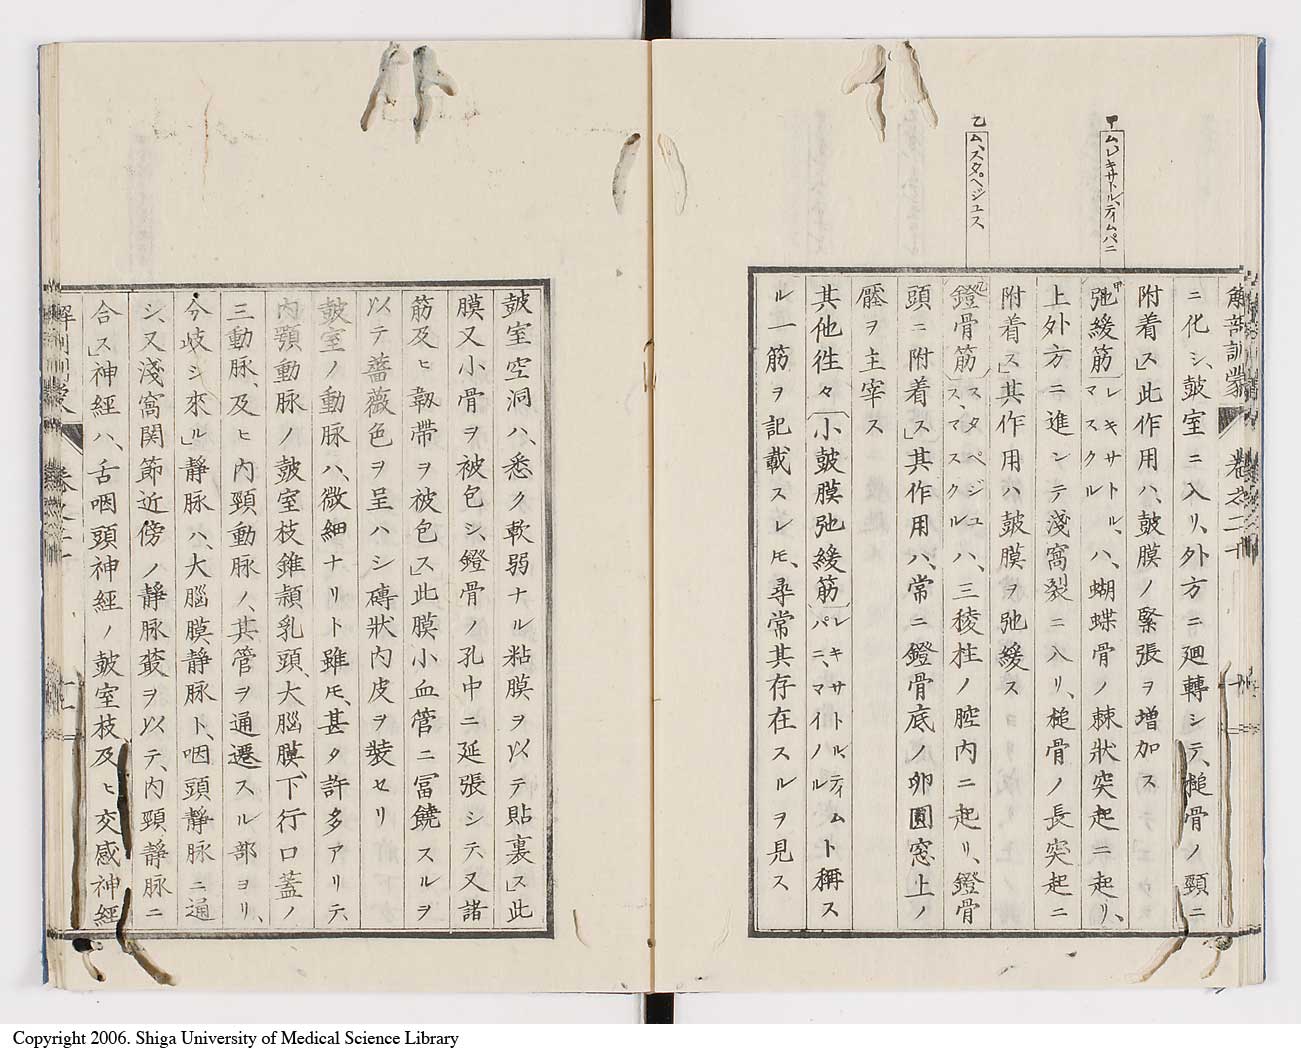 甲ム、レキサトル、ティムパニ
乙ム、スタペジユス
解剖訓蒙 卷之二十
ニ化シ、皷室ニ入リ、外方ニ廻轉シテ、槌骨ノ頸ニ
附着ス」此作用ハ、皷膜ノ緊張ヲ增加ス
甲弛緩筋レキサトル、マスクルハ、蝴蝶骨ノ棘狀突起ニ起リ、
上外方ニ進ンテ淺窩裂ニ入リ、槌骨ノ長突起ニ
附着ス」其作用ハ皷膜ヲ弛緩ス
乙鐙骨筋スタペジユス、マスクルハ、三稜柱ノ腔內ニ起リ、鐙骨
頭ニ附着ス」其作用ハ、常ニ鐙骨底ノ卵圓窓上ノ
壓ヲ主宰ス
其他徃々小皷膜弛緩筋レキサトル、ティムパニ、マイノルト稱ス
ル一筋ヲ記載スレ𪜈、尋常其存在スルヲ見ス
皷室空洞ハ、悉ク軟弱ナル粘膜ヲ以テ貼裏ス」此
膜又小骨ヲ被包シ、鐙骨ノ孔中ニ延張シテ又諸
筋及ヒ韌帶ヲ被包ス」此膜小血管ニ冨饒スルヲ
以テ薔薇色ヲ呈ハシ磚狀內皮ヲ裝セリ
皷室ノ動脉ハ、微細ナリト雖𪜈、甚タ許多アリテ、
內顎動脉ノ皷室枝錐顬乳頭、大腦膜、下行口蓋ノ
三動脉、及ヒ內頸動脉ノ、其管ヲ通遷スル部ヨリ、
分岐シ來ル」靜脉ハ、大腦膜靜脉ト、咽頭靜脉ニ通
シ、又淺窩関節近傍ノ靜脉叢ヲ以テ、內頸靜脉ニ
合ス」神經ハ、舌咽頭神經ノ皷室枝及ヒ交感神經
Copyright 2006. Shiga University of Medical Science Library